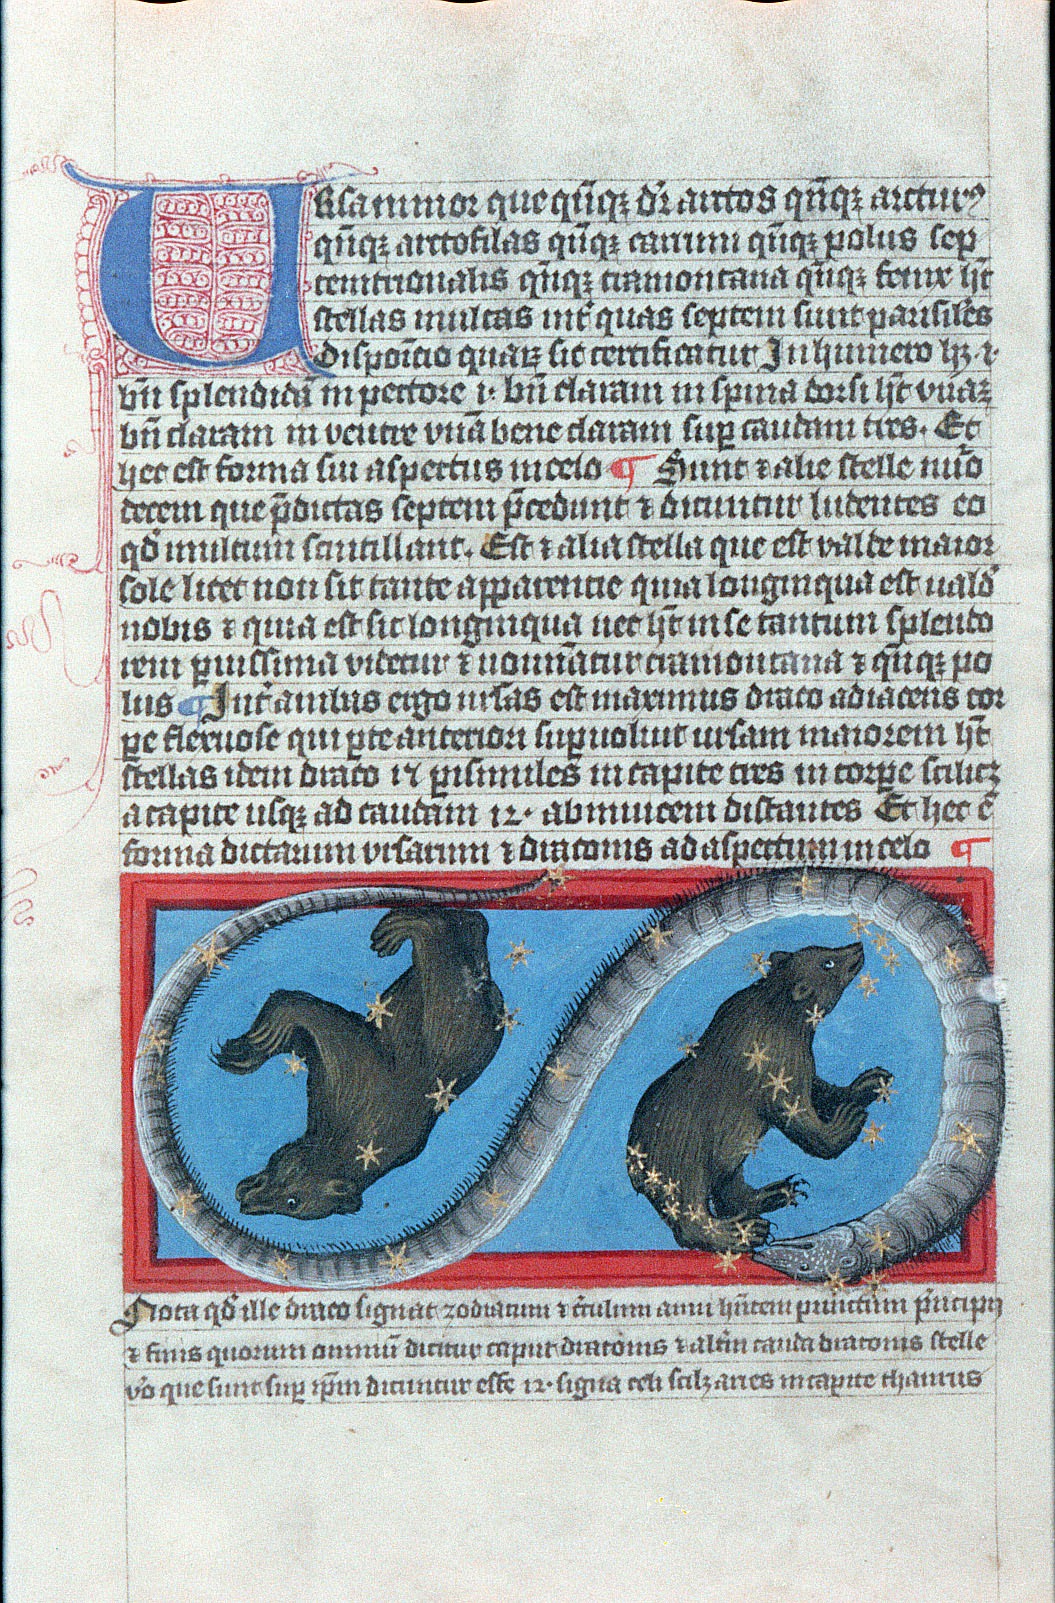 Ursa minor que qn̄qꝫ dr̄ arctos qn̄qꝫ arcturꝯ
qn̄qꝫ arctofilas qn̄qꝫ carrum qn̄qꝫ polus sep
temtrionalis qn̄qꝫ tramontana qn̄qꝫ fenix hn̄t
stellas multas int̄ quas septem sunt parisiles
dispoīcio quaꝝ sic certificatur In humero hꝫ .1.
bn̄ splendidā in pectore 1. bn̄ claram in spina dorsi hn̄t vnaꝫ
bn̄ claram in ventre vnā bene claram suꝑ caudam tres. Et
hec est forma sui aspectus in celo ¶ Sunt ⁊ alie stelle nūo
decem que p̄dictas septem p̄cedunt ⁊ dicuntur ludentes eo
qd̄ multum scintillant. Est ⁊ alia stella que est valde maior
sole licet non sit tante apparentie quia longinqua est uald̄
nobis ⁊ quia est sic longinqua nec hn̄t in se tantum splendo
rem ꝑuissima videtur ⁊ nomīatur tramontana ⁊ qn̄qꝫ po
lus ¶ Int̄ ambas ergo ursas est maximus draco adiacens cor
pe flexuose qui ꝑte anteriori suꝑuoluit ursam maiorem hn̄t
stellas idem draco 15 ꝑisimiles in capite tres in corꝑe scilicꝫ
a capite usqꝫ ad caudam 12. abinuicem distantes Et hec ē
forma dictarum ursarum ⁊ draconis ad aspectum in celo ¶
Nota qd̄ ille draco signat zodiacum ⁊ cīculum anni hn̄tem punctum p̄ncipij
⁊ finis quorum omniū dicitur caput draconis ⁊ altm̄ cauda draconis stelle
vō que sunt suꝑ ip̄m dicuntur esse 12. signa celi scilꝫ aries in capite thaurus